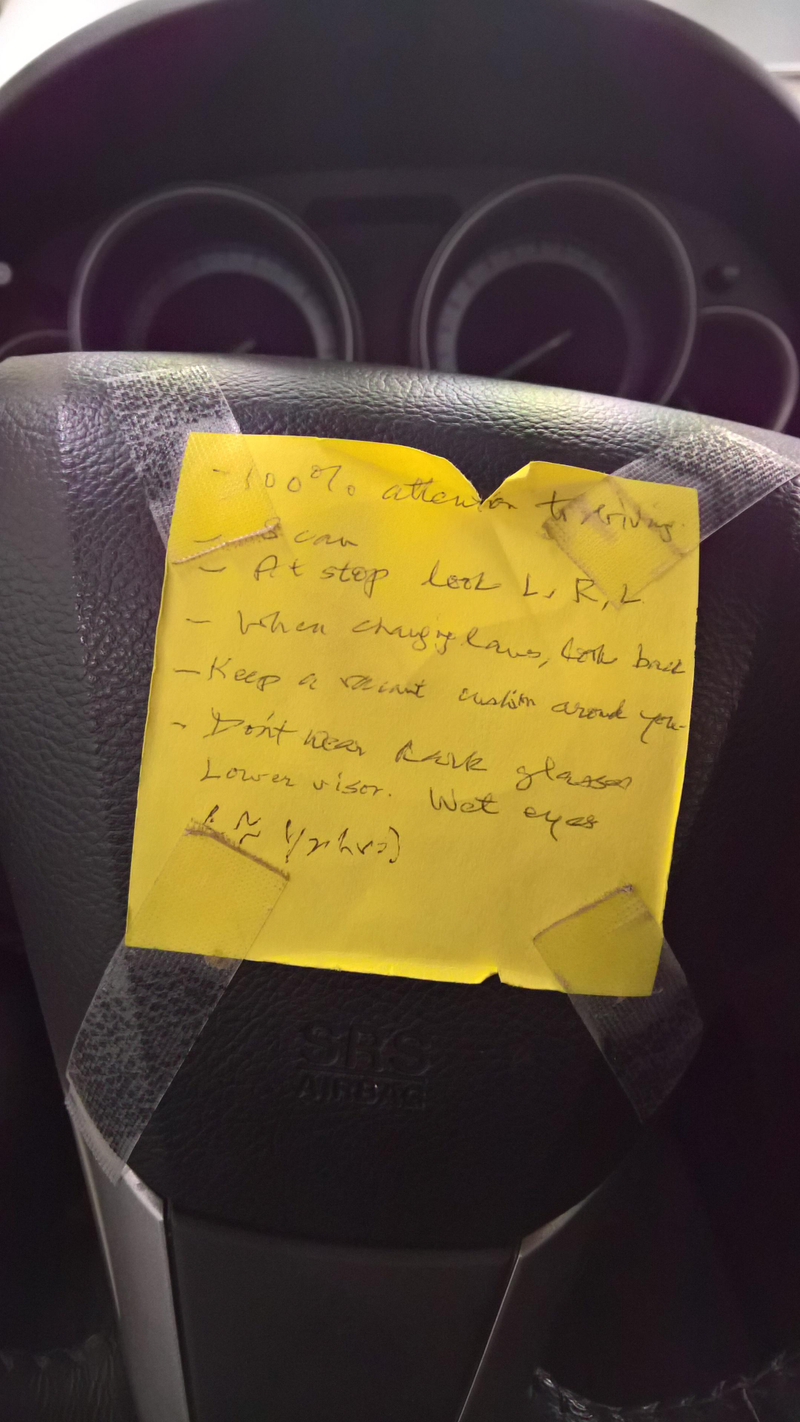 - 100% attention to driving
- Scan
- At stop look L, R, L
- When changing lanes, look back
- Keep a vacant cushion around you
- Don't wear dark glasses
Lower visor. Wet eyes
SRS
AIRBAG